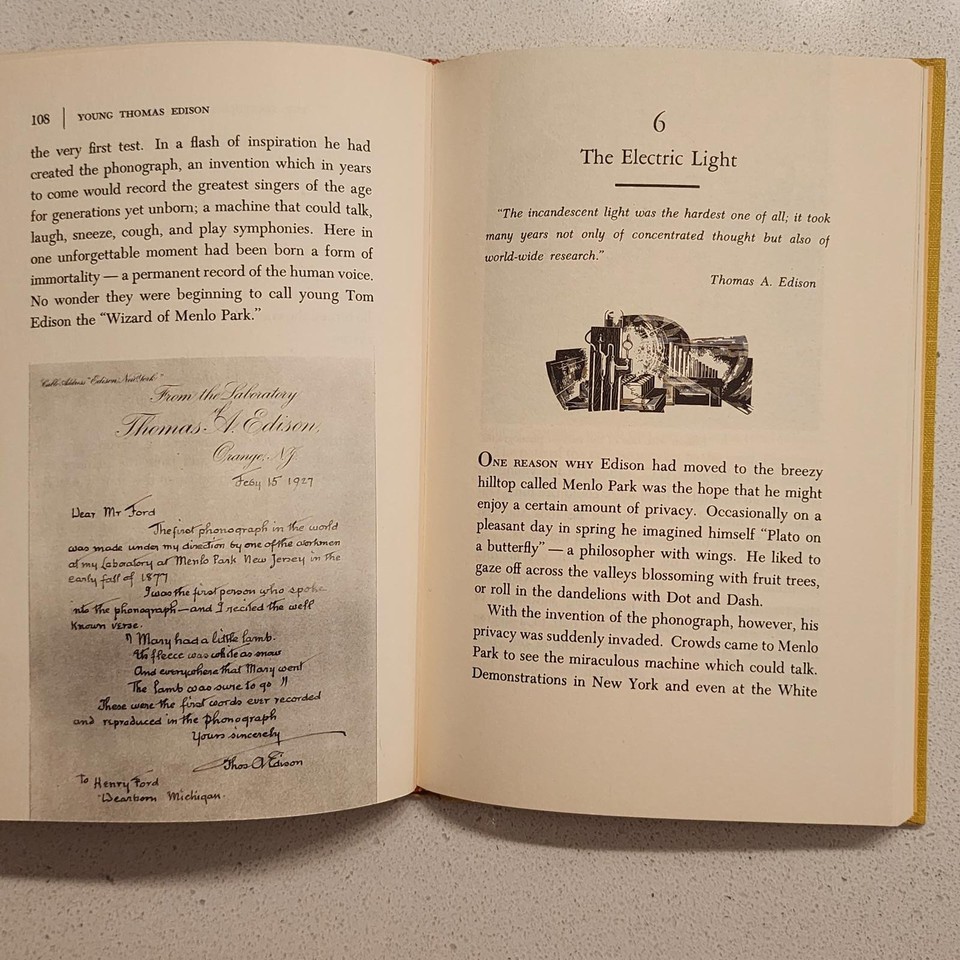 108 | YOUNG THOMAS EDISON
the very first test. In a flash of inspiration he had
created the phonograph, an invention which in years
to come would record the greatest singers of the age
for generations yet unborn; a machine that could talk,
laugh, sneeze, cough, and play symphonies. Here in
one unforgettable moment had been born a form of
immortality — a permanent record of the human voice.
No wonder they were beginning to call young Tom
Edison the “Wizard of Menlo Park.”
"Cable Address "Edison, New York"
From the Laboratory
of
Thomas A. Edison,
Orange, N.J.
Feby 15 1927
Dear Mr Ford
The first phonograph in the world
was made under my direction by one of the workmen
at my Laboratory at Menlo Park New Jersey in the
early fall of 1877
I was the first person who spoke
into the phonograph—and I recited the well
known verse.
" Mary had a little lamb.
Its fleece was white as snow
And everywhere that Mary went
The lamb was sure to go "
These were the first words ever recorded
and reproduced in the phonograph
Yours sincerely
Thos A Edison
To Henry Ford
Dearborn Michigan.
6
The Electric Light
“The incandescent light was the hardest one of all; it took
many years not only of concentrated thought but also of
world-wide research.”
Thomas A. Edison
ONE REASON WHY Edison had moved to the breezy
hilltop called Menlo Park was the hope that he might
enjoy a certain amount of privacy. Occasionally on a
pleasant day in spring he imagined himself “Plato on
a butterfly” — a philosopher with wings. He liked to
gaze off across the valleys blossoming with fruit trees,
or roll in the dandelions with Dot and Dash.
With the invention of the phonograph, however, his
privacy was suddenly invaded. Crowds came to Menlo
Park to see the miraculous machine which could talk.
Demonstrations in New York and even at the White